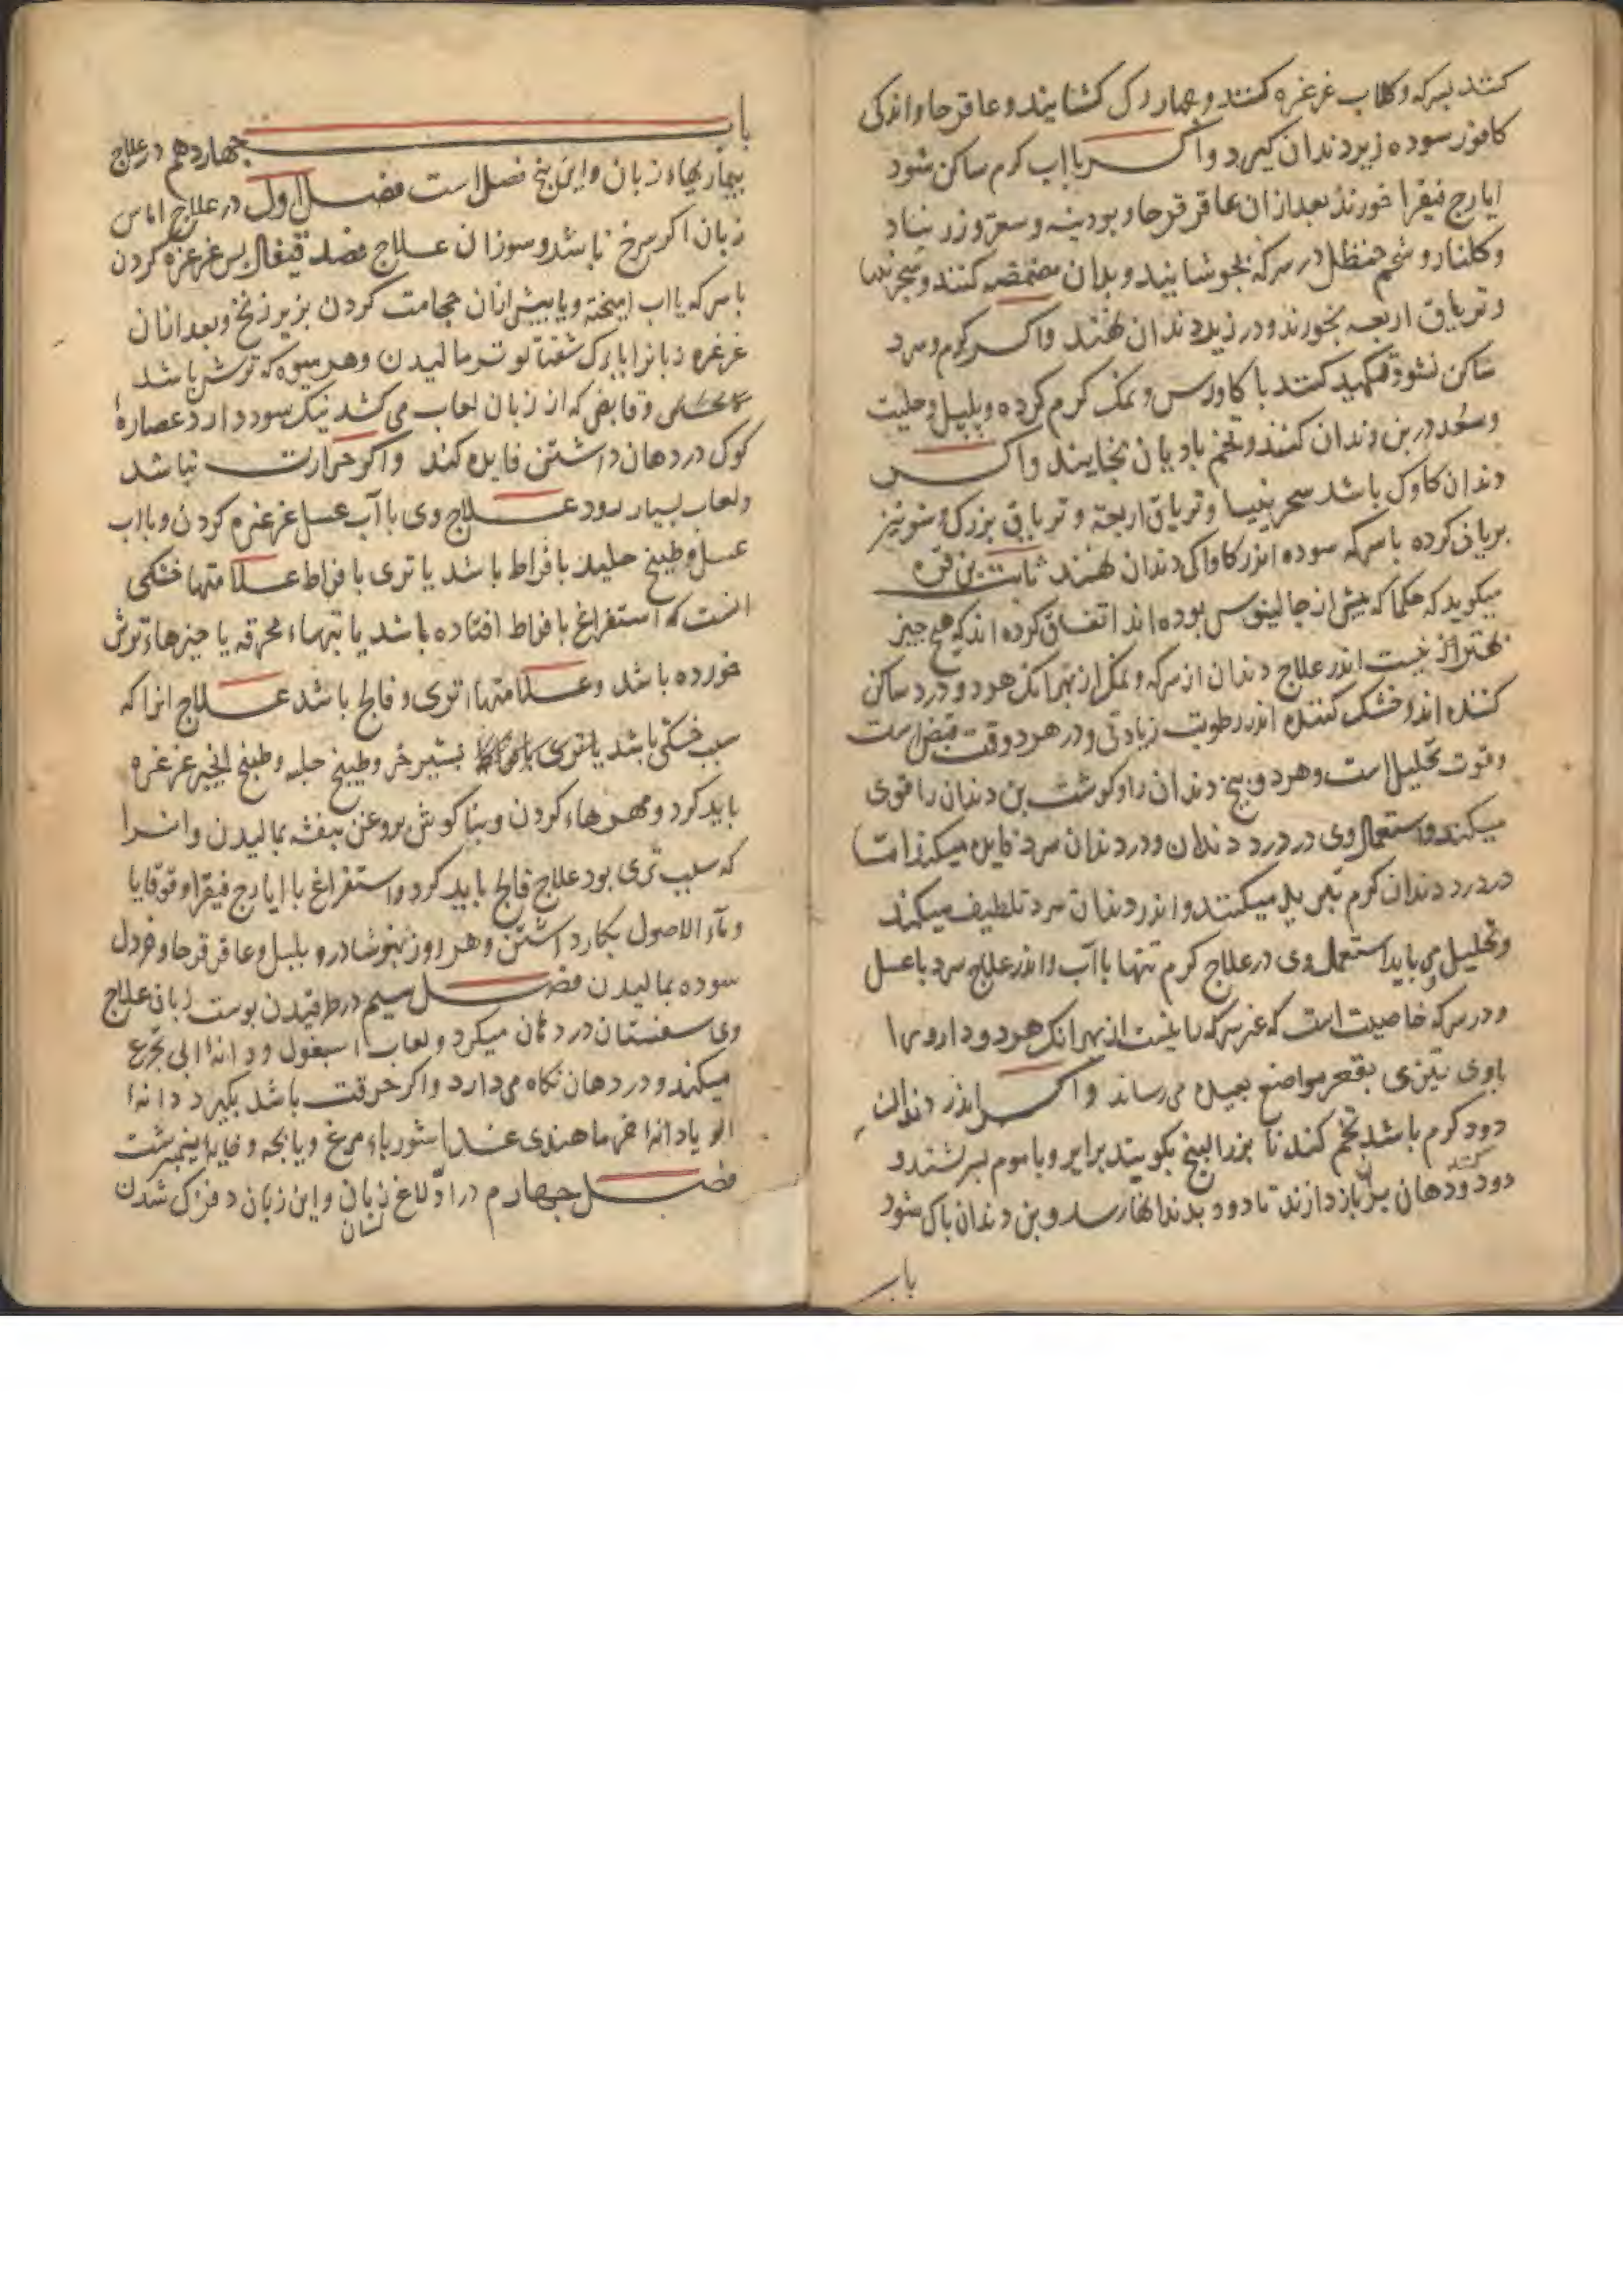 کنند بسرکه وکلاب غرغره کنند وجهار رک کشایند وعاقرقرحا واندکی
کافور سوده زیر دندان کیرد واکر با اب کرم ساکن شود
ایارج فیقرا خورند بعد ازان عاقرقرحا و بودینه و سعتر و زرنباد
وکلنار و شحم حنظل در سرکه بجوشانید و بدان مضمضه کنند و سجزنیا
و تریاق اربعه بخورند و در زیر دندان نهند واکر بکرم و سرد
ساکن نشود تکمید کنند با کاورس و نمک کرم کرده و بلبل و حلتیت
و سعد در بن دندان کنند و تخم بادیان بخایند واکر
دندان کاوک باشد سجزنیا و تریاق اربعه و تریاق بزرک و شونیز
بریان کرده با سرکه سوده اندر کاواکی دندان نهند ثابت بن قره
میکوید که حکما که بیش از جالینوس بوده اند اتفاق کرده اند که هیج جیز
بهتر از نیست اندر علاج دندان از سرکه و نمک از بهر انک هر دو درد ساکن
کننده اند و خشک کننده اندر رطوبت زیادتی و در هر دو قوت قبض است
و قوت تحلیل است و هر دو بیخ دندان را و کوشت بن دندان را قوی
میکند و استعمال وی در درد دندان و درد دندان سرد فایده میکند اما
در درد دندان کرم تبرید میکنند و اندر دندان سرد تلطیف میکند
و تحلیل و می باید استعمال وی در علاج کرم تنها با آب و اندر علاج سرد با عسل
و در سرکه خاصیت است که غیر سرکه را نیست از بهر انک هر دو دارو را
باوی تیزی بقعر مواضع بعیده می رساند واکر اندر دندان
دود کرم باشد بتخم کندنا بزر البنج بکوبند برابر و با موم بسرشند و
دود کنند و دهان بران باز دارند تا دود بدندانها رسد و بن دندان باک شود
باب
باب جهاردهم در علاج
بیماریهاء زبان و این بنج فصل است فصل اول در علاج اماس
زبان اکر سرخ باشد و سوزان علاج فصد قیفال بس غرغره کردن
با سرکه با اب امیخته و یا بیش ازان حجامت کردن بزیر زنخ و بعد ازان
غرغره زبانرا با برک شفتالو تر مالیدن و هر میوه که ترش باشد
و قابض که از زبان لعاب می کشد نیک سود دارد عصاره
کوک در دهان داشتن فایده کند واکر حرارت نباشد
و لعاب بسیار رود علاج وی با آب عسل غرغره کردن و با اب
عسل و طبیخ حلبه با فراط باشد یا تری با فراط علامتها خشکی
انست که استفراغ با فراط افتاده باشد یا تبهاء محرقه یا جیزهاء ترش
خورده باشد و علامتهاء توی و فالج باشد علاج انرا که
سبب خشکی باشد یا توی بشیر خر و طبیخ حلبه و طبیخ انجیر غرغره
باید کرد و مهرهاء کردن و بناکوش بروغن بنفشه بمالیدن وانرا
که سبب تری بود علاج فالج باید کرد و استفراغ با ایارج فیقرا و قوقایا
و ماء الاصول بکار داشتن و هر روز بنوشادر و بلبل و عاقرقرحا و خردل
سوده بمالیدن فصل سیم در طرقیدن بوست زبان علاج
وی سفستان در دهان میکرد و لعاب اسبغول و دانه ابی تجرع
میکند و در دهان نکاه می دارد واکر حرقت باشد بکیرد دانه
الو یا دانه خرما هندی غذا شورباء مرغ و بابجه و خایه نیمبرشت
فصل جهارم در ادلاغ زبان و این زبان دفزک شدن
لسان